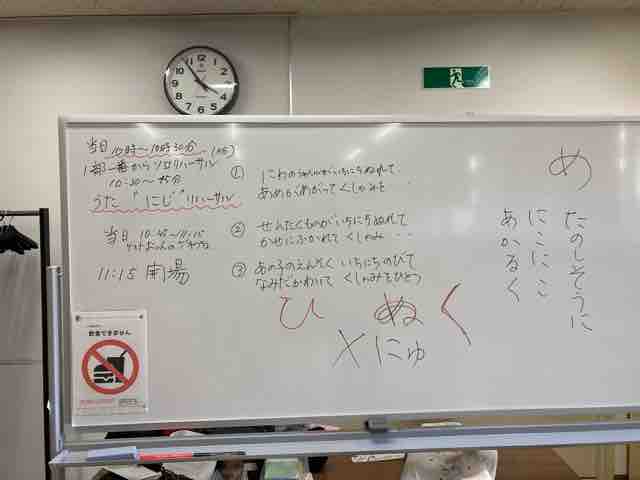 当日 10時〜10時30分
1部一番からソロリハーサル
10:30〜45分
うた "にじ" リハーサル
当日 10:45〜11:15
11:15 開場
① にわの
いちにちぬれて
あめがあがって くしゃみを ‥
② せんたくものがいちにちぬれて
かぜにふかれて くしゃみ ‥
③ あの子のえんそく いちにちのびて
なみだかわいて くしゃみをひとつ
ひ ぬ く
× にゅ
め
たのしそうに
にこにこ
あかるく
飲食できません